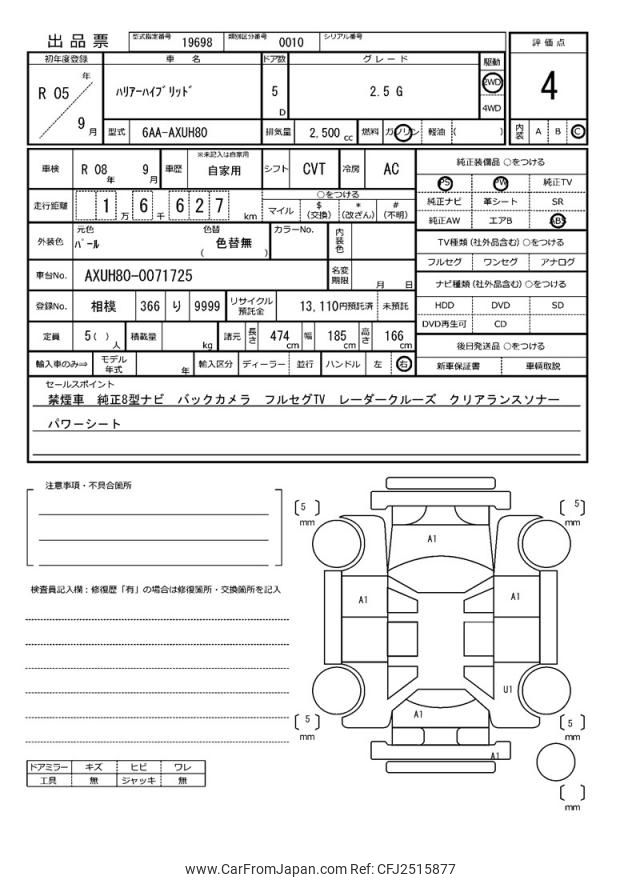 出品票 型式指定番号 19698 類別区分番号 0010 シリアル番号
評価点
4
内装 A B C
初年度登録 車名 ドア数 グレード 駆動
R 05 年 9 月
ﾊﾘｱｰﾊｲﾌﾞﾘｯﾄﾞ 5 D 2.5 G 2WD 4WD
型式 6AA-AXUH80 排気量 2,500 cc 燃料 ガソリン 軽油 ( )
車検 R 08 年 9 月 車歴 ※未記入は自家用 自家用 シフト CVT 冷房 AC
走行距離 1 万 6 千 6 2 7 km
○をつける
マイル $ (交換) * (改ざん) # (不明)
外装色 元色 ﾊﾟｰﾙ 色替 色替無 ( ) カラーNo. 内装色
車台No. AXUH80-0071725 名変期限 月 日
登録No. 相模 366 り 9999 リサイクル預託金 13,110円預託済 未預託
定員 5( ) 人 積載量 kg 諸元 長さ 474 cm 幅 185 cm 高さ 166 cm
輸入車のみ⇒ モデル年式 年 輸入区分 ディーラー 並行 ハンドル 左 右
純正装備品 ○をつける
PS PW 純正TV
純正ナビ 革シート SR
純正AW エアB ABS
TV種類 (社外品含む) ○をつける
フルセグ ワンセグ アナログ
ナビ種類 (社外品含む) ○をつける
HDD DVD SD
DVD再生可 CD
後日発送品 ○をつける
新車保証書 車輌取説
セールスポイント
禁煙車 純正8型ナビ バックカメラ フルセグTV レーダークルーズ クリアランスソナー
パワーシート
注意事項・不具合箇所
検査員記入欄：修復歴「有」の場合は修復箇所・交換箇所を記入
ドアミラー キズ ヒビ ワレ
工具 無 ジャッキ 無
5 mm
5 mm
A1
A1
A1
U1
A1
A1
5 mm
5 mm
mm
www.CarFromJapan.com Ref: CFJ2515877